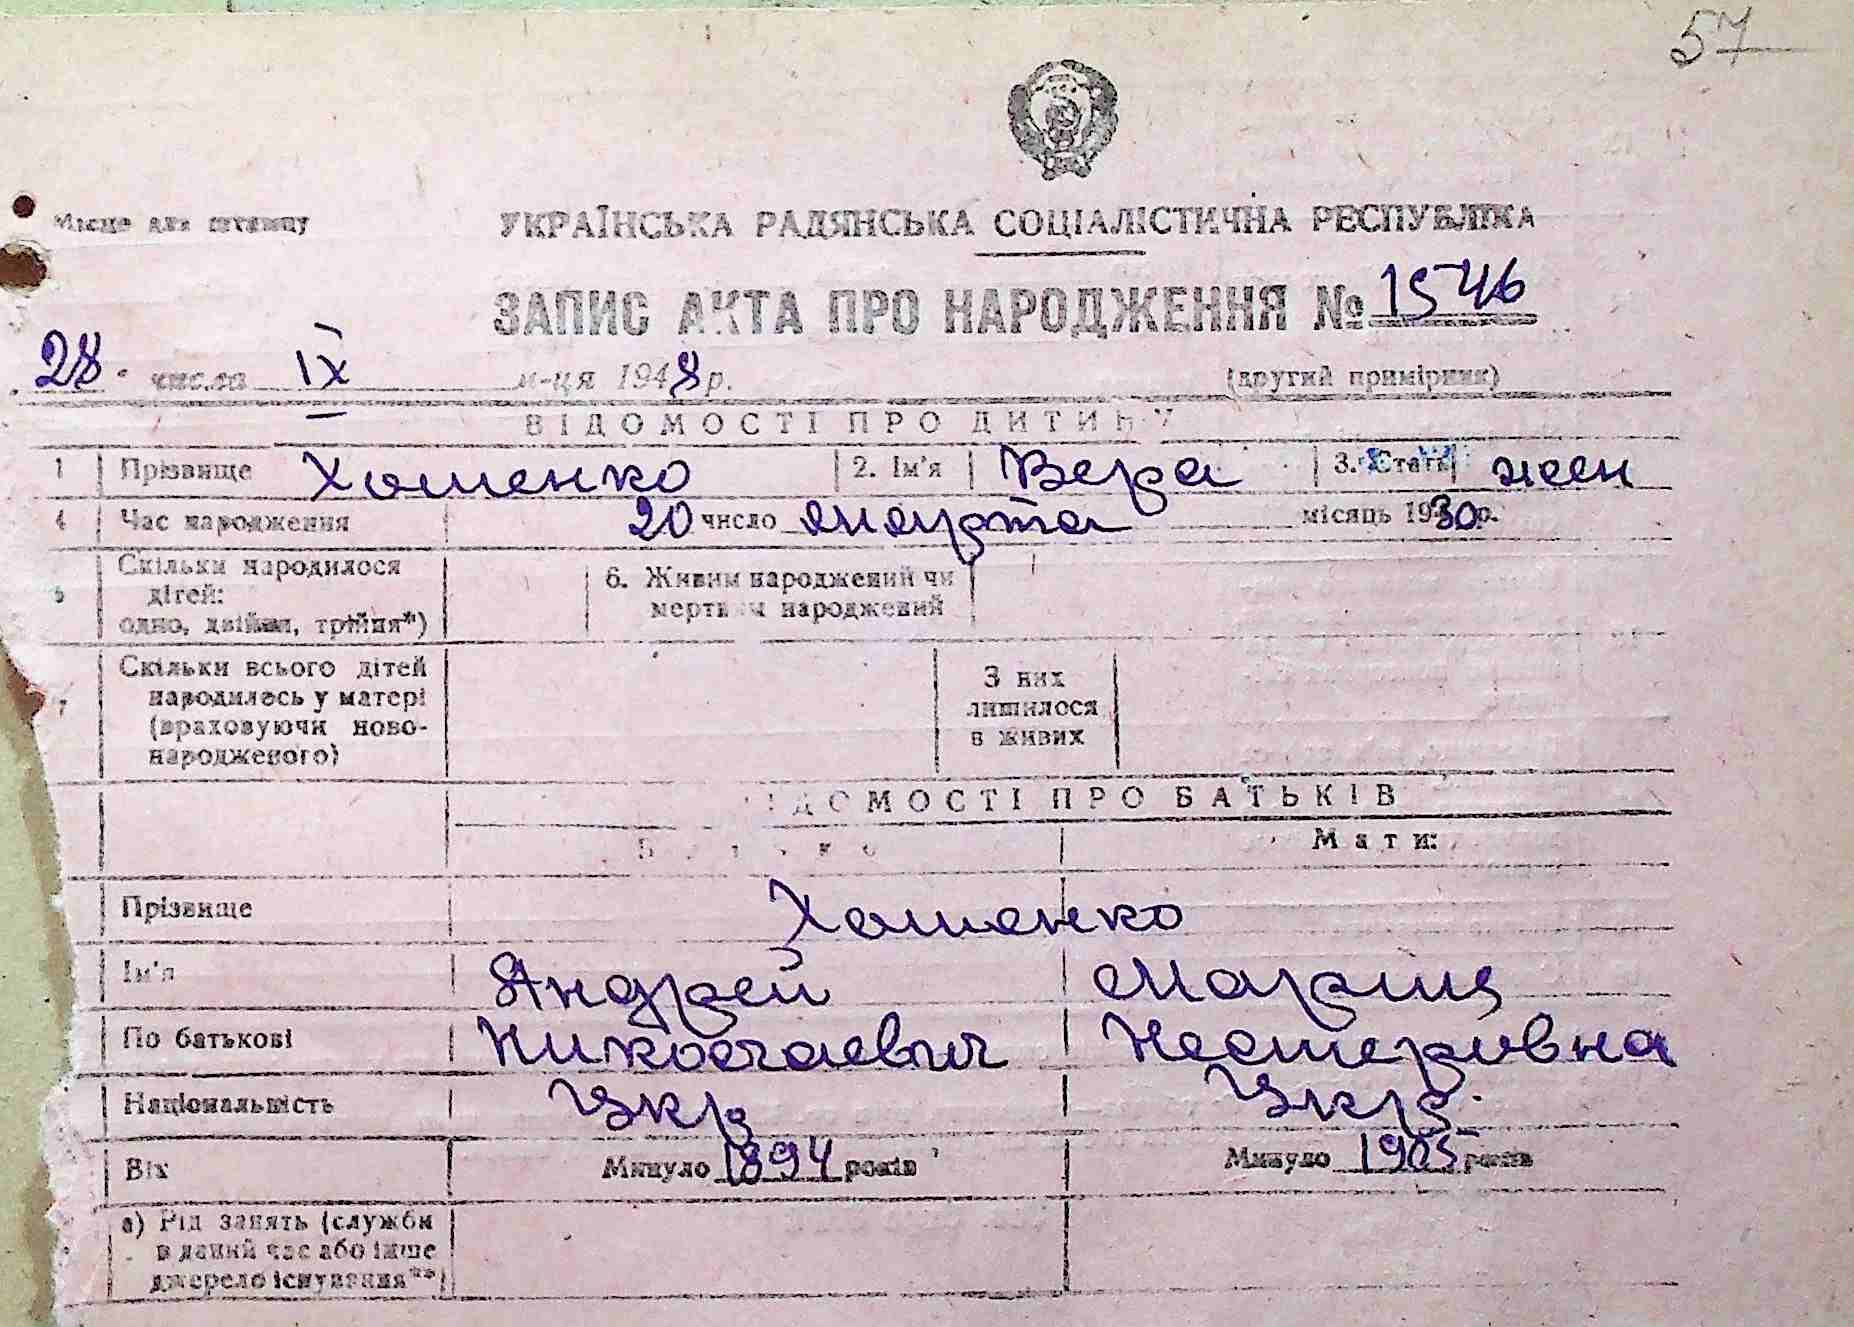 57
Місце для штампу
УКРАЇНСЬКА РАДЯНСЬКА СОЦІАЛІСТИЧНА РЕСПУБЛІКА
ЗАПИС АКТА ПРО НАРОДЖЕННЯ № 1546
28 числа IX м-ця 1948 р. (другий примірник)
ВІДОМОСТІ ПРО ДИТИНУ
1 Прізвище Хоменко 2. Ім'я Вера 3. Стать жен
4 Час народження 20 число марта місяць 1930 р.
5 Скільки народилося дітей: одно, двійня, трійня*) 6. Живим народжений чи мертвим народжений
7 Скільки всього дітей народилось у матері (враховуючи новонародженого) З них лишилося в живих
ВІДОМОСТІ ПРО БАТЬКІВ
Батько Мати:
Прізвище Хоменко
Ім'я Андрей Мария
По батькові Николаевич Нестеровна
Національність Укр Укр.
Вік Минуло 1894 років Минуло 1905 років
а) Рід занять (служби в даний час або інше джерело існування**)